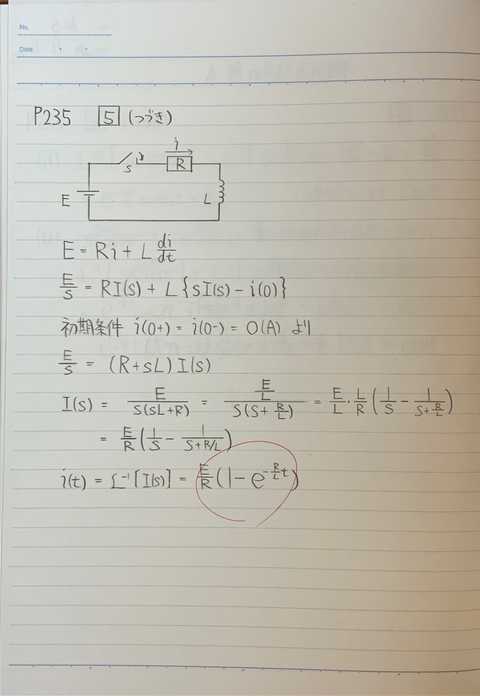 No.
Date
P235 5 (つづき)
i
S R
E L
E = Ri + L di/dt
E/S = RI(s) + L{sI(s) - i(0)}
初期条件 i(0+) = i(0-) = 0(A) より
E/S = (R+sL)I(s)
I(s) = E/S(sL+R) = E/L/S(S+R/L) = E/L・L/R(1/S - 1/S+R/L)
= E/R(1/S - 1/S+R/L)
i(t) = L⁻¹[I(s)] = E/R(1-e^-R/L t)